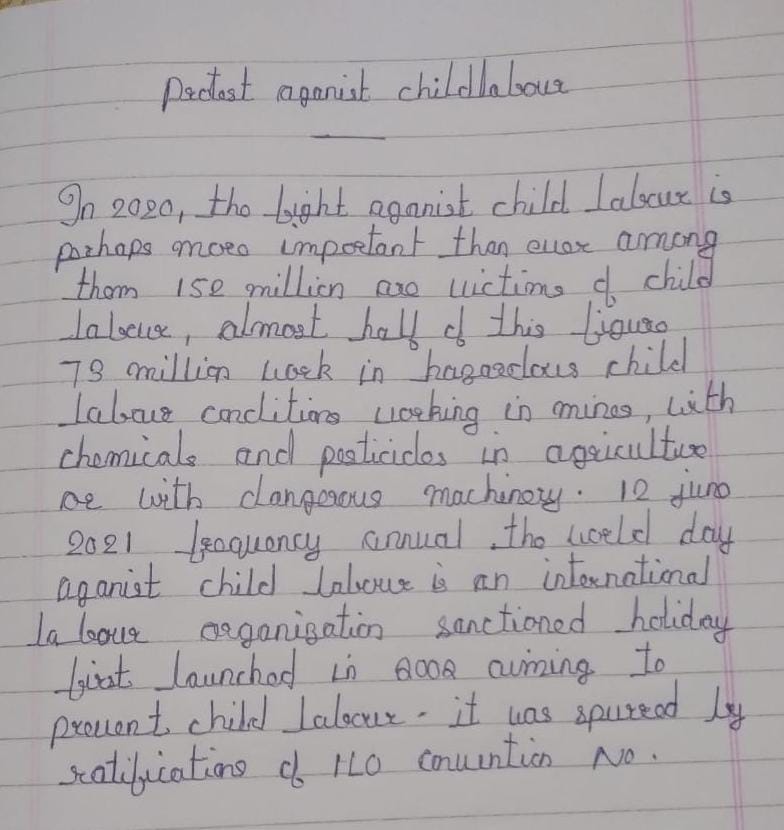 Protest aganist childlabour
In 2020, the fight aganist child labour is
perhaps more important than ever among
them 152 million are victims of child
labour, almost half of this figure
73 million work in hazardous child
labour conditions working in mines, with
chemicals and pesticides in agriculture
or with dangerous machinery. 12 june
2021 frequency annual the world day
aganist child labour is an international
labour organisation sanctioned holiday
first launched in 2002 aiming to
prevent child labour - it was spurred by
ratifications of ILO convention No.